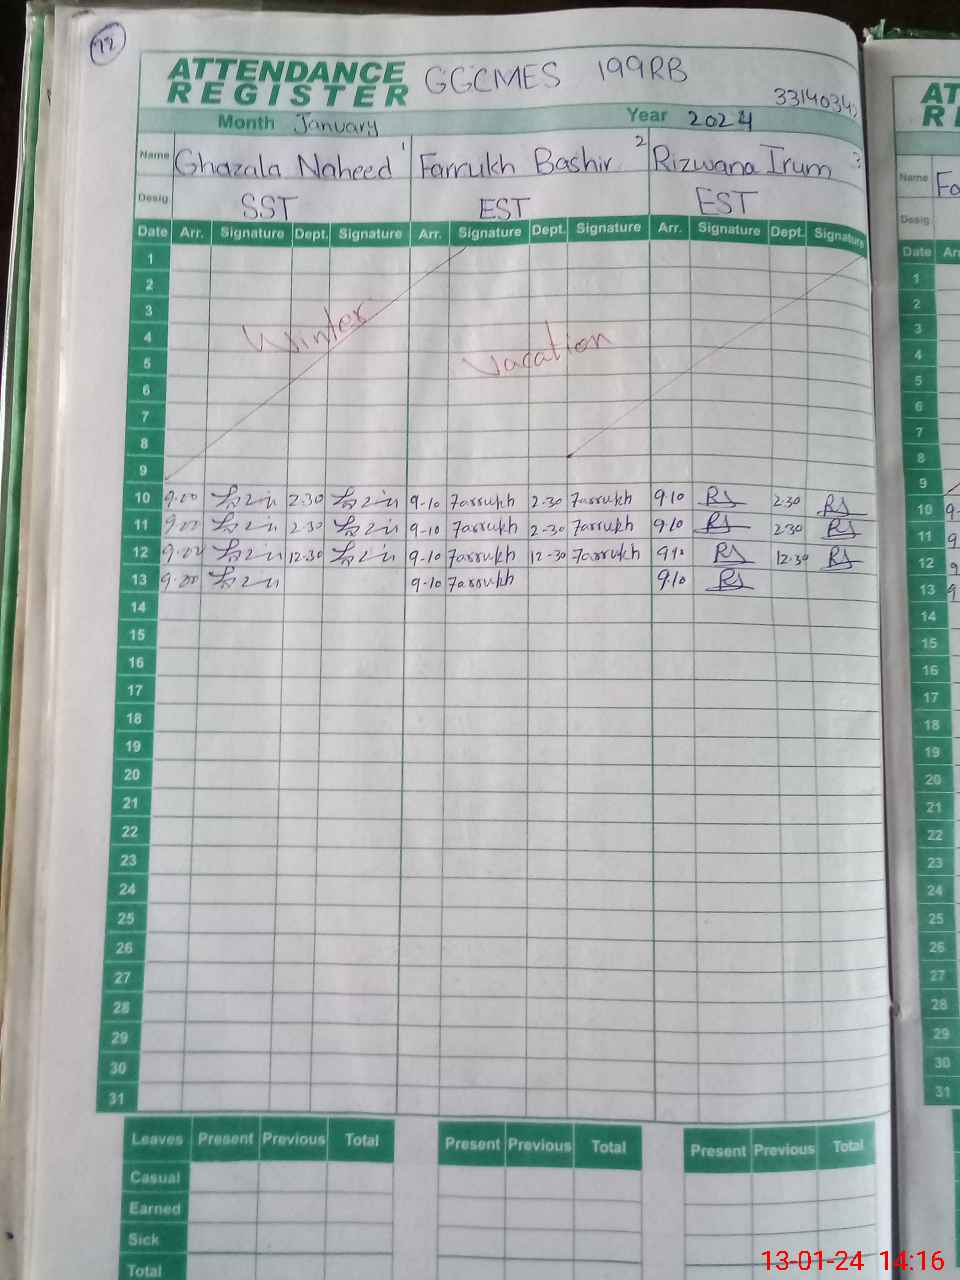 72
ATTENDANCE REGISTER GGCMES 199RB
3314034
Month January Year 2024
Name Ghazala Naheed 1 Farrukh Bashir 2 Rizwana Irum 3
Desig. SST EST EST
Date Arr. Signature Dept. Signature Arr. Signature Dept. Signature Arr. Signature Dept. Signature
1
2
3
4
5
6
7
8
9
Winter Vacation
10 9.00 2.30 9-10 Farrukh 2-30 Farrukh 9.10 RS 2.30 RS
11 9.00 2.30 9-10 Farrukh 2-30 Farrukh 9.10 RS 2.30 RS
12 9.00 12.30 9-10 Farrukh 12-30 Farrukh 910 RS 12.30 RS
13 9.00 9-10 Farrukh 9.10 RS
14
15
16
17
18
19
20
21
22
23
24
25
26
27
28
29
30
31
Leaves Present Previous Total Present Previous Total Present Previous Total
Casual
Earned
Sick
Total
AT
R
Name Fa
Desig.
Date Arr
1
2
3
4
5
6
7
8
9
10 9
11 9
12 9
13 9
14
15
16
17
18
19
20
21
22
23
24
25
26
27
28
29
30
31
13-01-24 14:16